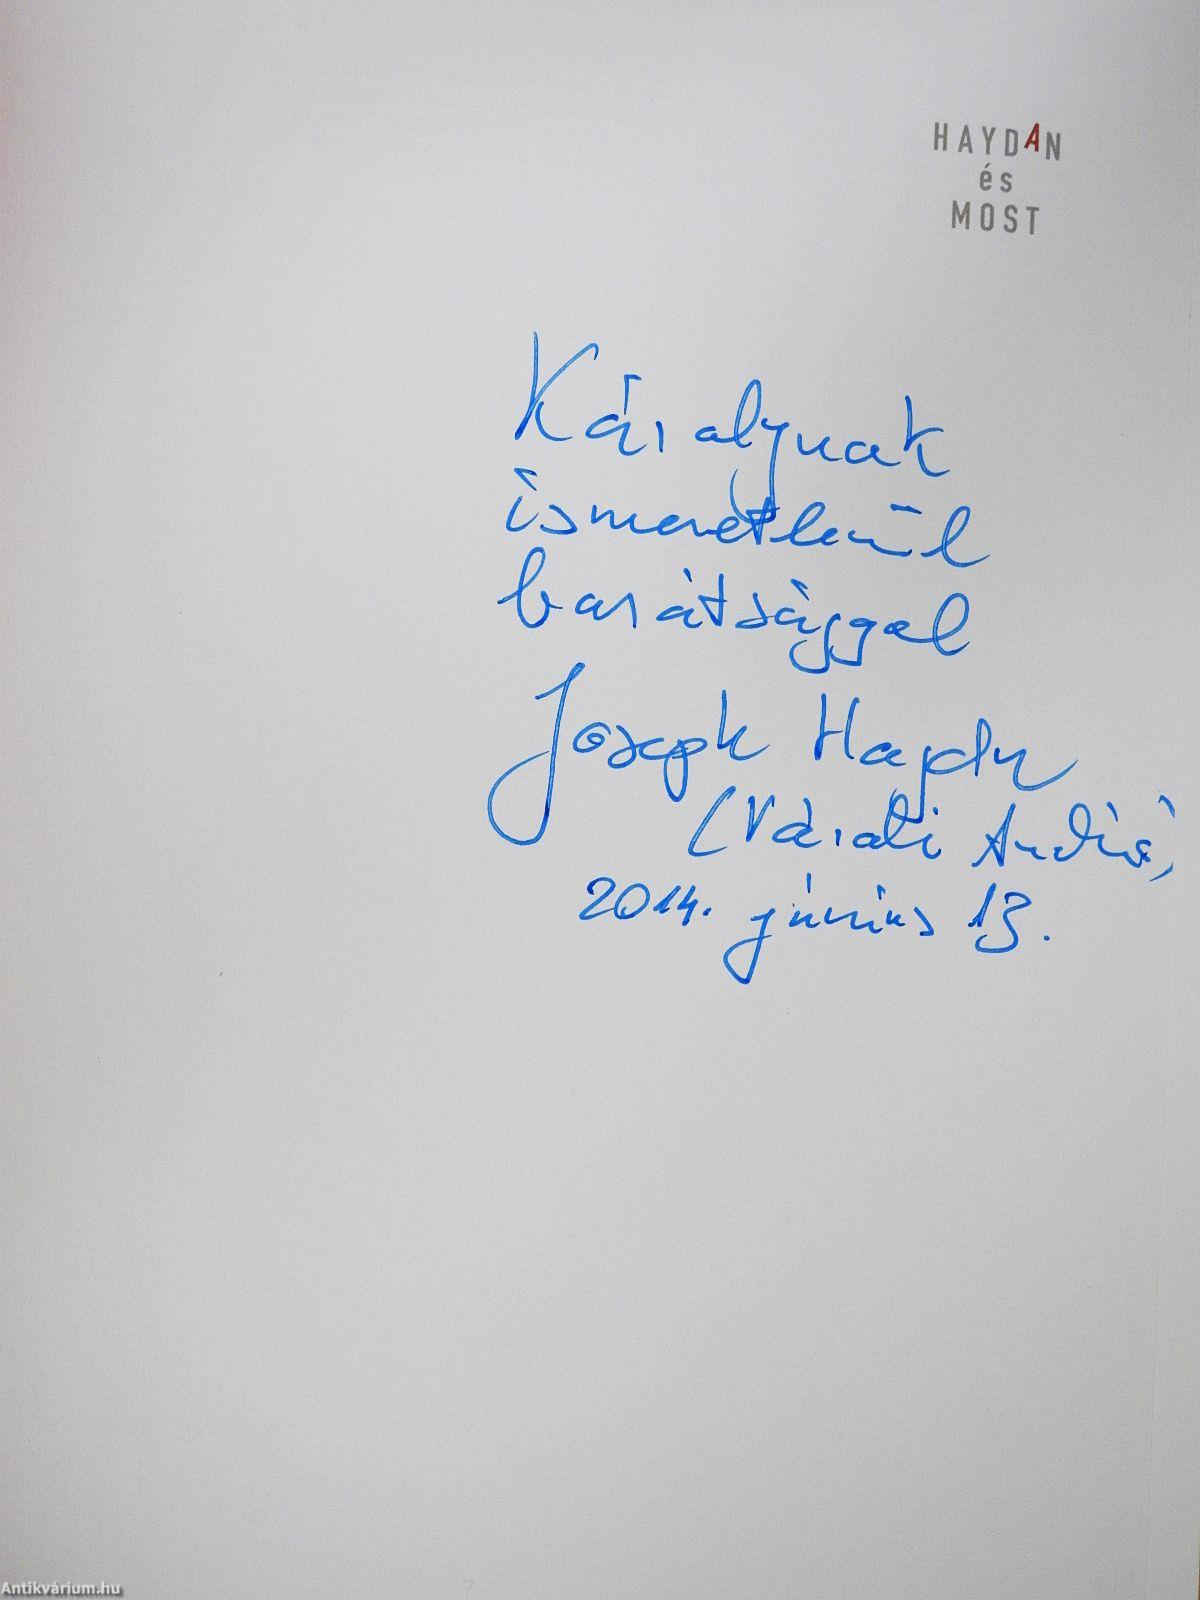 HAYDAN
és
MOST
Károlynak
ismeretlenül
barátsággal
Joseph Haydn
(Várati András)
2014. június 13.
Antikvárium.hu